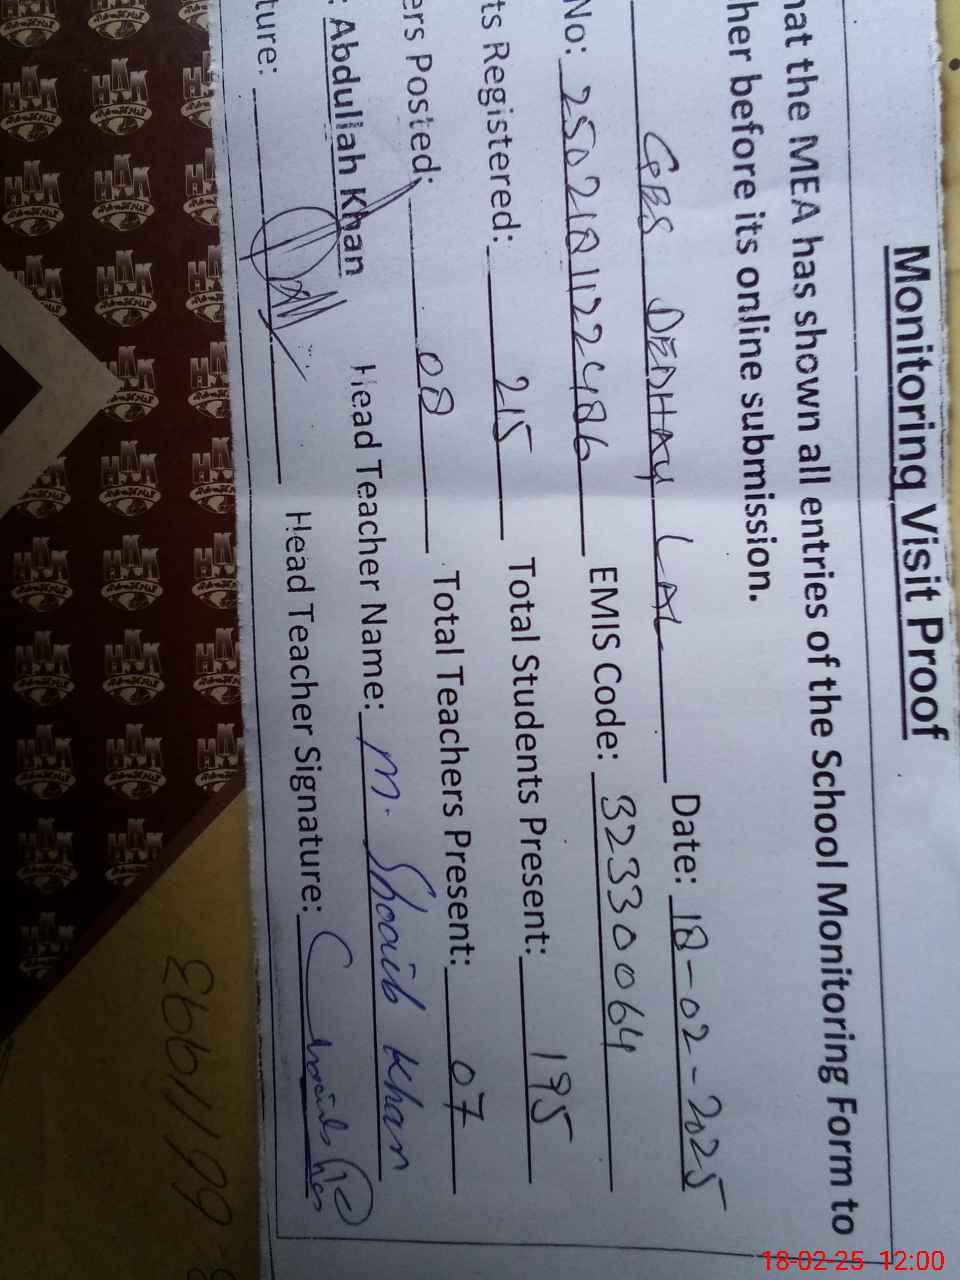 Monitoring Visit Proof
hat the MEA has shown all entries of the School Monitoring Form to
her before its online submission.
GPS DEDHAY LAL Date: 18-02-2025
No: 2502181122486 EMIS Code: 32330064
ts Registered: 215 Total Students Present: 195
ers Posted: 08 Total Teachers Present: 07
: Abdullah Khan Head Teacher Name: M. Shoaib Khan
ture: Head Teacher Signature:
18-02-25 12:00